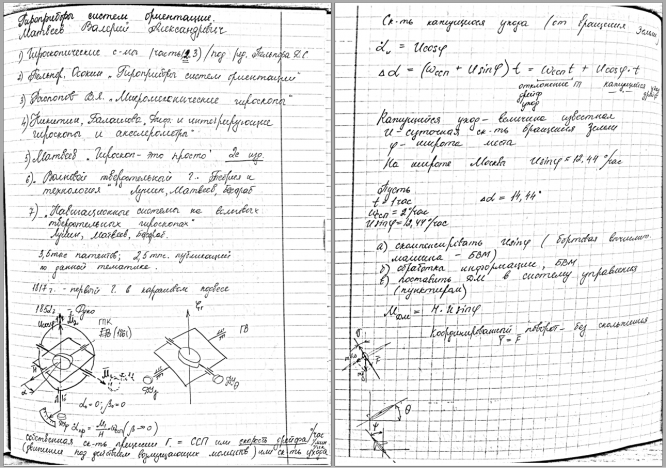 Гироприборы систем ориентации.
Матвеев Валерий Александрович
1) Гироскопические с-мы (часть 2,3) / под ред. Пельпора Д.С
2) Пельпор, Осокин "Гироприборы систем ориентации"
3) Распопов В.Я. "Микромеханические гироскопы"
4) Никитин, Балашова и интегрирующие
гироскопы и акселерометры"
5) Матвеев "Гироскоп - это просто" 2е изд.
6) "Волновой твердотельный г. Теория и
технология" Лунин, Матвеев, Басараб
7) "Навигационные системы на волновых
твердотельных гироскопах"
Лунин, Матвеев, Басараб.
3,5 тыс патентов; 2,5 тыс. публикаций
по данной тематике.
1817г. - первый г. в кардановом подвесе
1852г - Фуко
ГПК
ГВ
α₀ = 0; β₀ = 0
собственная ск-ть прецессии г. = ССП или скорость дрейфа °/час
(движения под действием возмущающих моментов) или ск-ть ухода
Ск-ть кажущегося ухода (от вращения Земли)
Δα = (ωссп + U sinφ) t = ωссп t + U sinφ · t
отклонение
дрейф
уход
кажущийся
Кажущийся уход - величина известная
U - суточная ск-ть вращения Земли
φ - широта места
На широте Москвы U sinφ = 12,44°/час
Пусть
t = 1 час
Δα = 14,44°
ωссп = 2°/час
U sinφ = 12,44°/час
а) скомпенсировать U sinφ (бортовая вычислит.
машина - БВМ)
б) обработка информации, БВМ
в) поставить ДМ в систему управления
(пунктиром)
Мдм = H · U sinφ
Координированный поворот - без скольжения